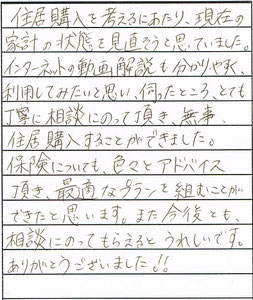 住居購入を考えるにあたり、現在の
家計の状態を見直そうと思っていました。
インターネットの動画解説も分かりやすく、
利用してみたいと思い、伺ったところ、とても
丁寧に相談にのって頂き、無事、
住居購入することができました。
保険についても、色々とアドバイス
頂き、最適なプランを組むことが
できたと思います。また今後とも、
相談にのってもらえるとうれしいです。
ありがとうございました!!